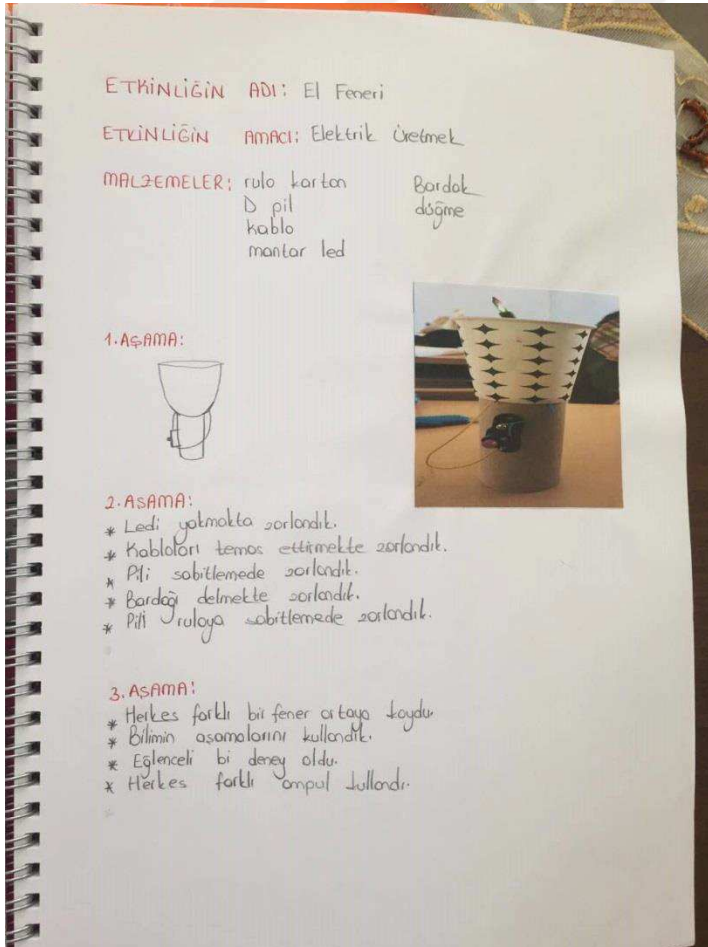 ETKİNLİĞİN ADI: El Feneri
ETKİNLİĞİN AMACI: Elektrik Üretmek
MALZEMELER: rulo karton Bardak
D pil düğme
kablo
mantar led
1.AŞAMA:
2.ASAMA:
* Ledi yakmakta zorlandık.
* Kabloları temas ettirmekte zorlandık.
* Pili sabitlemede zorlandık.
* Bardağı delmekte zorlandık.
* Pili ruloya sabitlemede zorlandık.
3.ASAMA:
* Herkes farklı bir fener ortaya koydu.
* Bilimin aşamalarını kullandık.
* Eğlenceli bi deney oldu.
* Herkes farklı ampul kullandı.